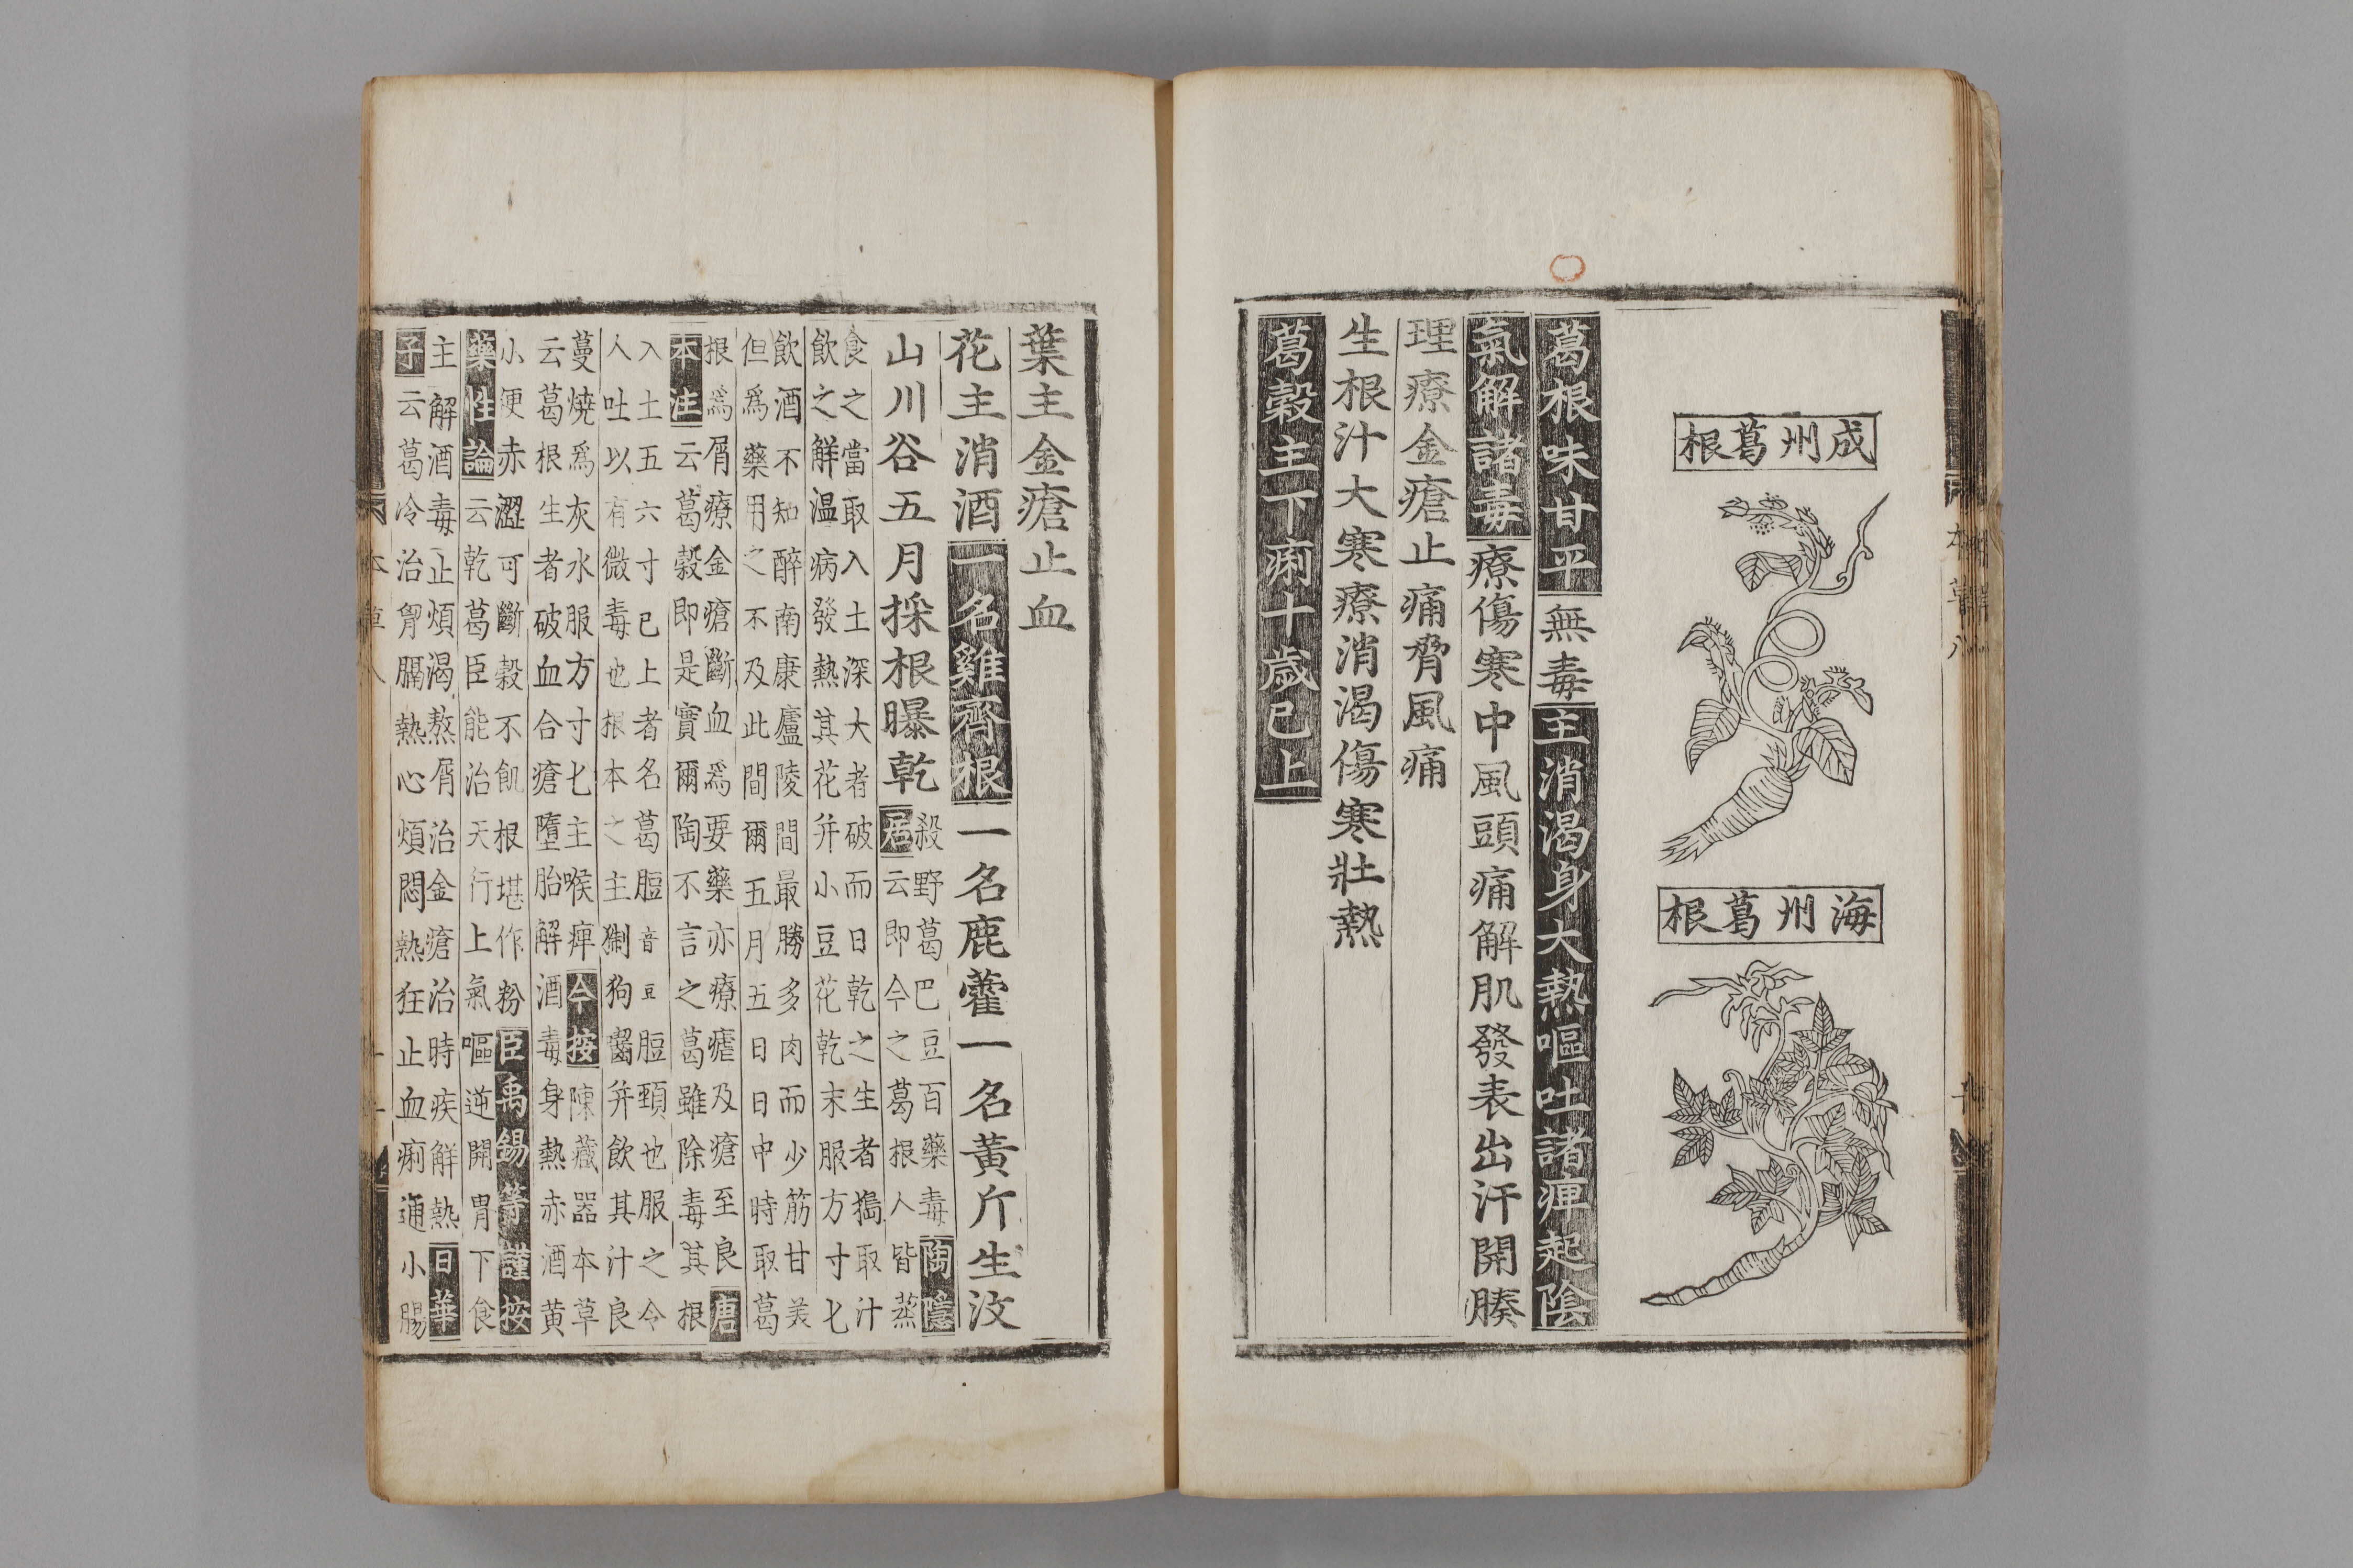 成州葛根
海州葛根
葛根味甘平無毒主消渴身大熱嘔吐諸痹起陰
氣解諸毒療傷寒中風頭痛解肌發表出汗開腠
理療金瘡止痛脅風痛
生根汁大寒療消渴傷寒壯熱
葛穀主下痢十歲已上
葉主金瘡止血
花主消酒一名雞齊根一名鹿藿一名黃斤生汶
山川谷五月採根曝乾
殺野葛巴豆百藥毒陶隱
居云即今之葛根人皆蒸
食之當取入土深大者破而日乾之生者擣取汁
飲之解溫病發熱其花并小豆花乾末服方寸匕
飲酒不知醉南康廬陵間最勝多肉而少筋甘美
但爲藥用之不及此間爾五月五日日中時取葛
根爲屑療金瘡斷血爲要藥亦療瘧及瘡至良唐
本注云葛穀即是實爾陶不言之葛雖除毒其根
入土五六寸已上者名葛脰音豆脰頸也服之令
人吐以有微毒也根本之主猘狗齧并飲其汁良
蔓燒爲灰水服方寸匕主喉痺今按陳藏器本草
云葛根生者破血合瘡墮胎解酒毒身熱赤酒黃
小便赤澀可斷穀不飢根堪作粉臣禹錫等謹按
藥性論云乾葛臣能治天行上氣嘔逆開胃下食
主解酒毒止煩渴熬屑治金瘡治時疾解熱日華
子云葛冷治胷膈熱心煩悶熱狂止血痢通小腸
本草八